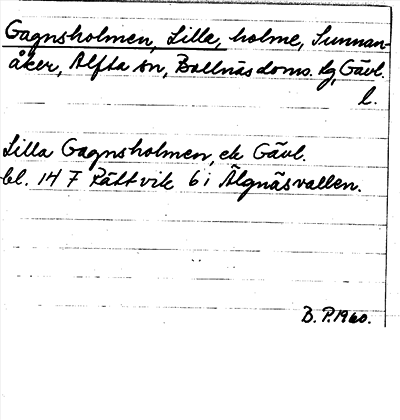 Gagnsholmen, Lilla, holme, Sunnan-
åker, Alfta sn, Bollnäs doms. lg, Gävl.
l.
Lilla Gagnsholmen, ek Gävl.
bl. 147 Rättvik 6 i Älgnäsvallen.
B. P. 1960.